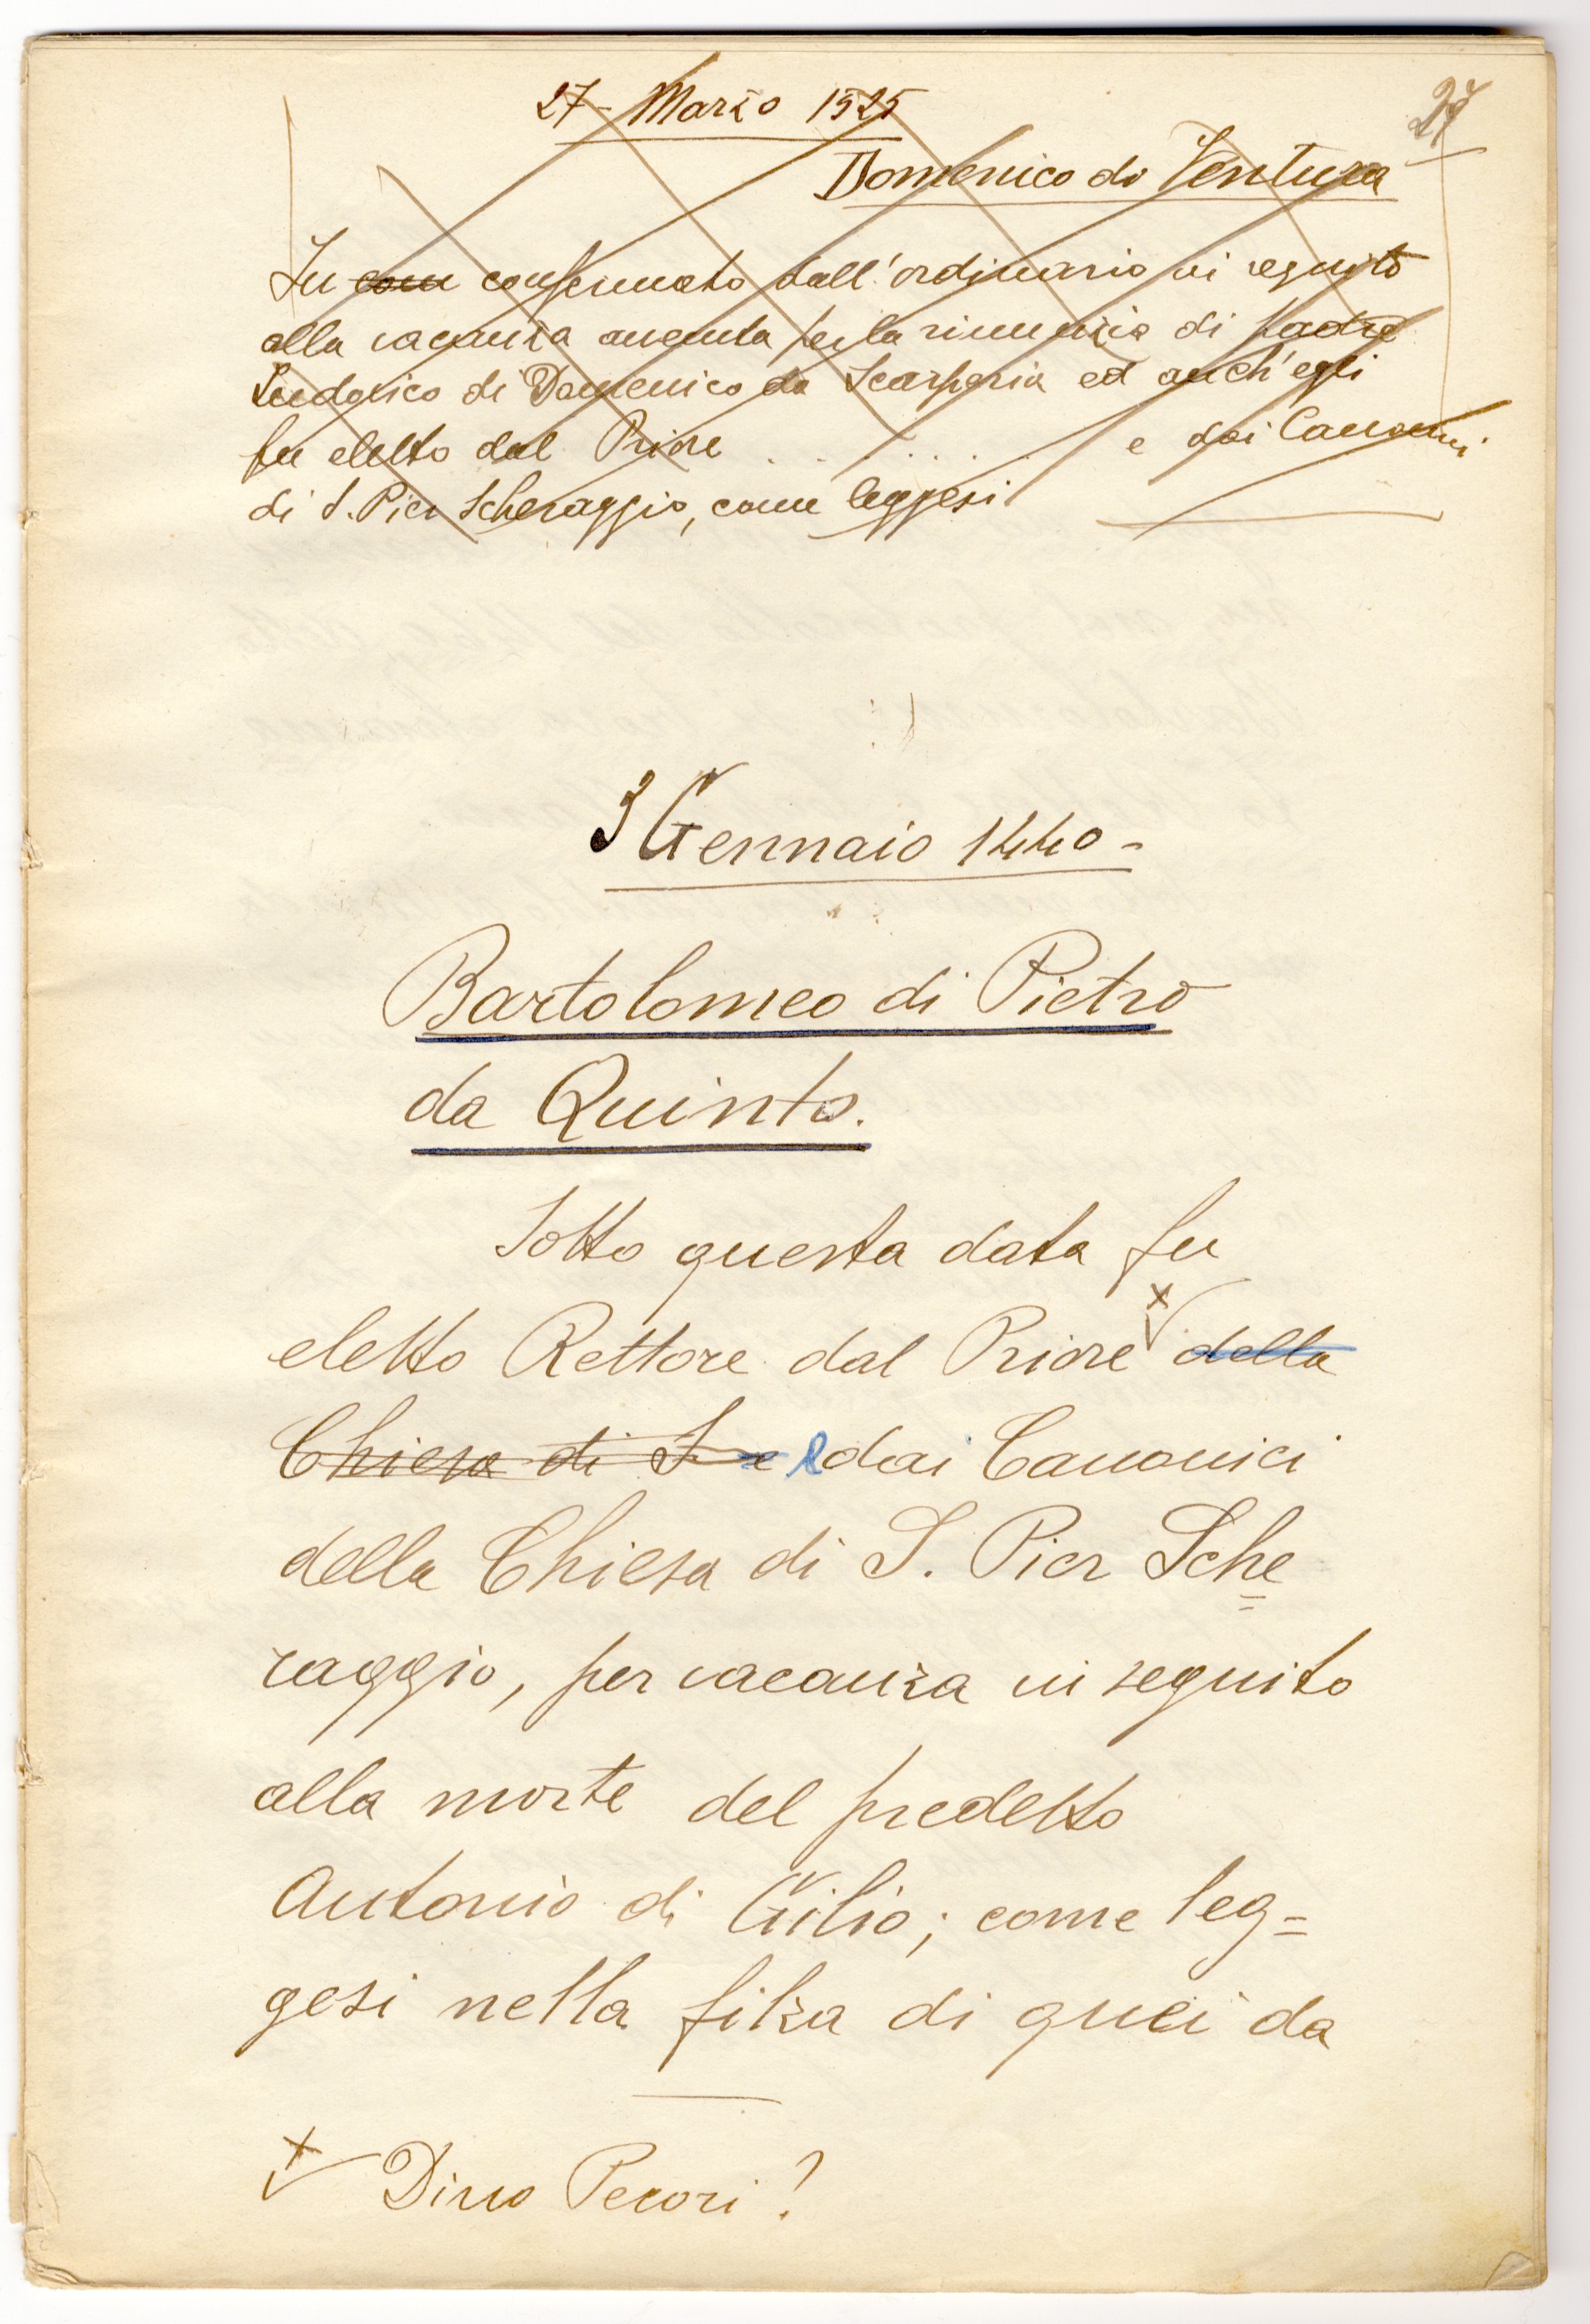 27
27 - Marzo 1525
Domenico di Ventura
Fu com confermato dall'ordinario in seguito
alla vacanza avvenuta per la rinunzia di padre
Ludovico di Domenico da Scarperia ed anch'egli
fu eletto dal Priore . . . . . . . e dai Canonici
di S. Pier Scheraggio, come leggesi
3 Gennaio 1440 -
Bartolomeo di Pietro
da Quinto.
Sotto questa data fu
eletto Rettore dal Priore x della
Chiesa di S e e dai Canonici
della Chiesa di S. Pier Sche=
raggio, per vacanza in seguito
alla morte del predetto
Antonio di Gilio; come leg=
gesi nella filza di quei da
x Dino Pecori?